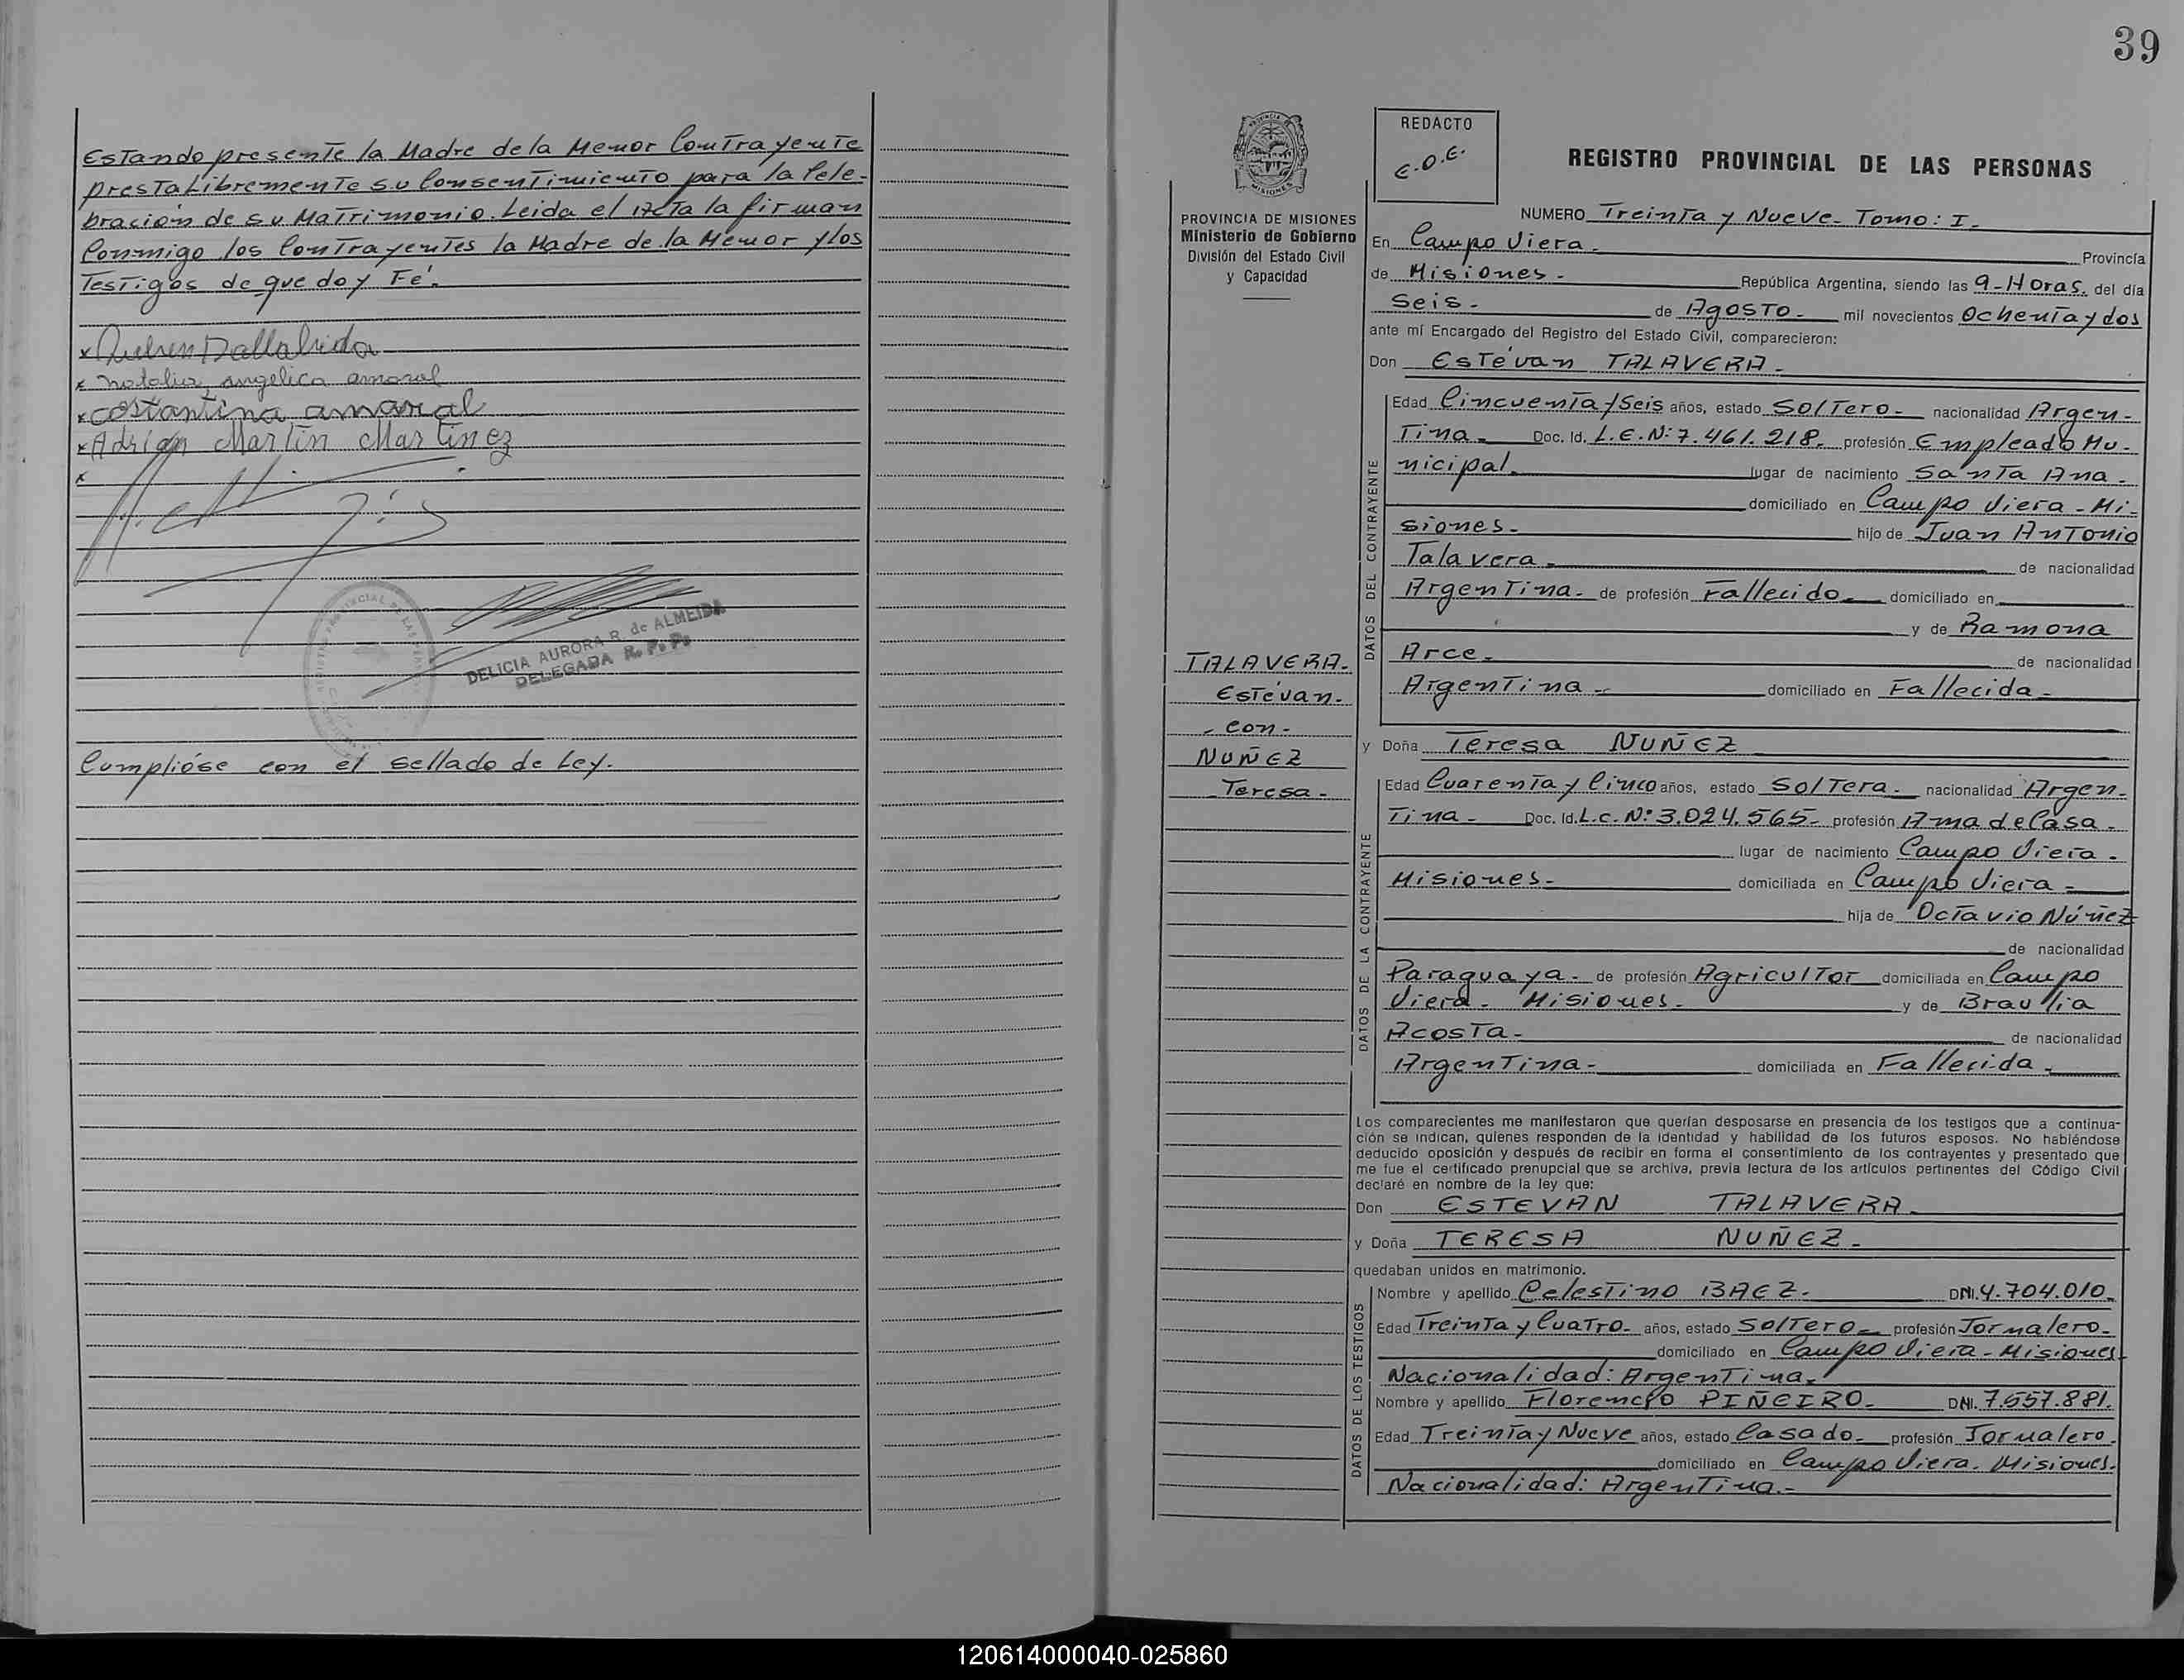 Estando presente la Madre de la Menor Contrayente
presta Libremente su Consentimiento para la Cele-
bración de su Matrimonio. Leida el Acta la firman
Conmigo los Contrayentes la Madre de la Menor y los
Testigos de que doy Fé.
x Dallabrida
x natalia angelica amaral
x costantina amaral
x Adrián Martín Martinez
x
DELICIA AURORA R. de ALMEIDA
DELEGADA R. P. P.
Cumplióse con el sellado de Ley.
39
PROVINCIA DE MISIONES
Ministerio de Gobierno
División del Estado Civil
y Capacidad
REDACTO
E.O.E.
REGISTRO PROVINCIAL DE LAS PERSONAS
NUMERO Treinta y Nueve- Tomo: I-
En Campo Viera- Provincia
de Misiones- República Argentina, siendo las 9-Horas. del día
Seis- de Agosto- mil novecientos Ochenta y dos
ante mí Encargado del Registro del Estado Civil, comparecieron:
Don Estévan TALAVERA-
TALAVERA-
Estévan-
-con-
NUÑEZ
Teresa-
DATOS DEL CONTRAYENTE
Edad Cincuenta y Seis años, estado Soltero- nacionalidad Argen-
tina- Doc. Id. L.E.Nº 7.461.218- profesión Empleado Mu-
nicipal- lugar de nacimiento Santa Ana-
domiciliado en Campo Viera-Mi-
siones- hijo de Juan Antonio
Talavera- de nacionalidad
Argentina- de profesión Fallecido- domiciliado en
y de Ramona
Arce- de nacionalidad
Argentina- domiciliado en Fallecida-
y Doña Teresa NUÑEZ
DATOS DE LA CONTRAYENTE
Edad Cuarenta y Cinco años, estado Soltera- nacionalidad Argen-
tina- Doc. Id. L.C. Nº 3.024.565- profesión Ama de Casa-
lugar de nacimiento Campo Viera-
Misiones- domiciliada en Campo Viera-
hija de Octavio Núñez
de nacionalidad
Paraguaya- de profesión Agricultor domiciliada en Campo
Viera- Misiones- y de Braulia
Acosta- de nacionalidad
Argentina- domiciliada en Fallecida-
Los comparecientes me manifestaron que querían desposarse en presencia de los testigos que a continua-
ción se indican, quienes responden de la identidad y habilidad de los futuros esposos. No habiéndose
deducido oposición y después de recibir en forma el consentimiento de los contrayentes y presentado que
me fue el certificado prenupcial que se archiva, previa lectura de los artículos pertinentes del Código Civil
declaré en nombre de la ley que:
Don ESTEVAN TALAVERA-
y Doña TERESA NUÑEZ-
quedaban unidos en matrimonio.
DATOS DE LOS TESTIGOS
Nombre y apellido Celestino BAEZ- DNI. 4.704.010-
Edad Treinta y Cuatro- años, estado Soltero- profesión Jornalero-
domiciliado en Campo Viera-Misiones
Nacionalidad: Argentina-
Nombre y apellido Florencio PIÑEIRO- DNI. 7.557.881.
Edad Treinta y Nueve años, estado Casado- profesión Jornalero-
domiciliado en Campo Viera. Misiones.
Nacionalidad: Argentina.-
120614000040-025860